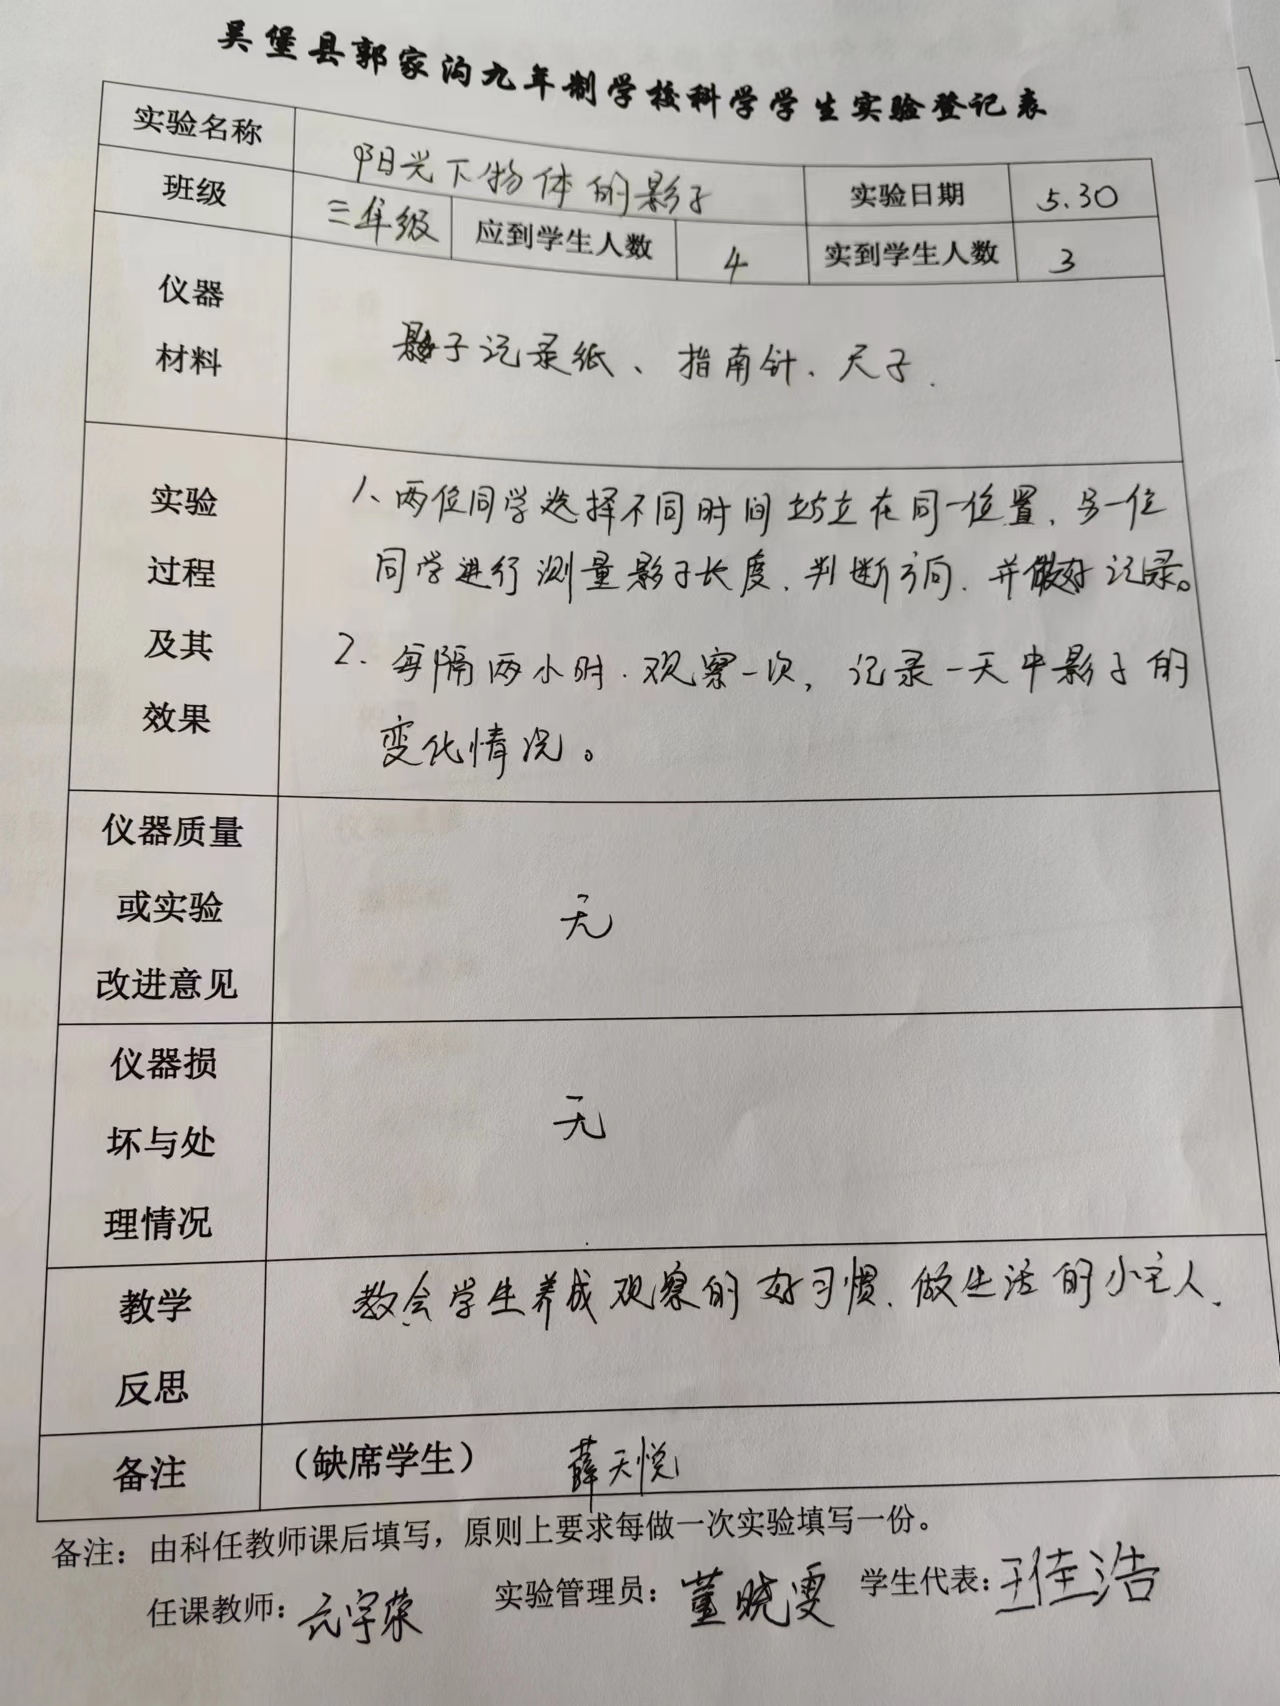 吴堡县郭家沟九年制学校科学学生实验登记表
实验名称 阳光下物体的影子 实验日期 5.30
班级 三年级 应到学生人数 4 实到学生人数 3
仪器
材料
影子记录纸、指南针、尺子.
实验
过程
及其
效果
1、两位同学选择不同时间站立在同一位置,另一位
同学进行测量影子长度,判断方向,并做好记录。
2.每隔两小时.观察一次,记录一天中影子的
变化情况。
仪器质量
或实验
改进意见
无
仪器损
坏与处
理情况
无
教学
反思
教会学生养成观察的好习惯,做生活的小主人.
备注 (缺席学生) 薛天悦
备注:由科任教师课后填写,原则上要求每做一次实验填写一份。
任课教师: 亢宇荣 实验管理员: 董晓雯 学生代表: 王佳浩